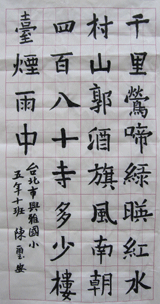 千里鶯啼綠暎紅水
村山郭酒旗風南朝
四百八十寺多少樓
臺煙雨中
台北市興雅國小
五年十班 陳